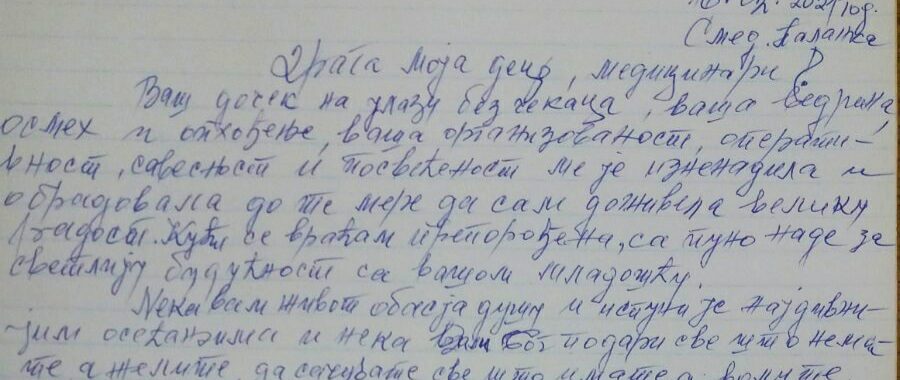 02. 2021 год.
Смед. Паланка
Драга моја децо, медицинари!
Ваш дочек на улазу без чекања, ваша ведрина,
осмех и опхођење, ваша организованост, операти-
вност, савесност и посвећеност ме је изненадила и
обрадовала до те мере да сам доживела велику
радост. Кући се враћам препорођена, са пуно наде за
светлију будућност са вашом младошћу.
Нека вам живот обасја душу и испуни је најдивни-
јим осећањима и нека вам Бог подари све што нема-
те а желите, да сачувате све што имате а волите